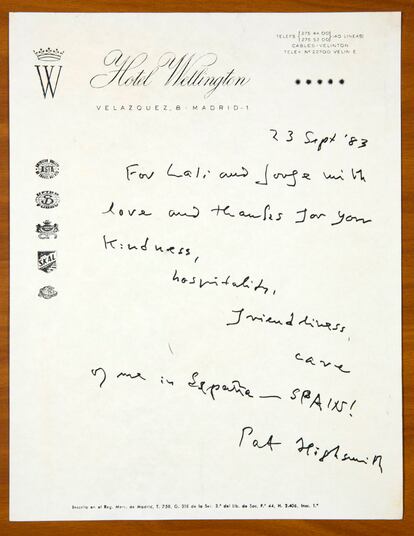 TELEFS. {275 44 00 (40 LINEAS)
{275 52 00
CABLES - VELINTON
TELEX Nº 22700 VELIN E
W
Hotel Wellington
VELAZQUEZ, 8 - MADRID-1
23 Sept '83
For Lali and Jorge with
love and thanks for your
kindness,
hospitality,
friendliness,
care
of me in España — SPAIN!
Pat Highsmith
SKAL
Inscrita en el Reg. Merc. de Madrid, T. 758, G. 218 de la Sec. 3.ª del Lib. de Soc. F.º 44, H. 2.406, Insc. 1.ª